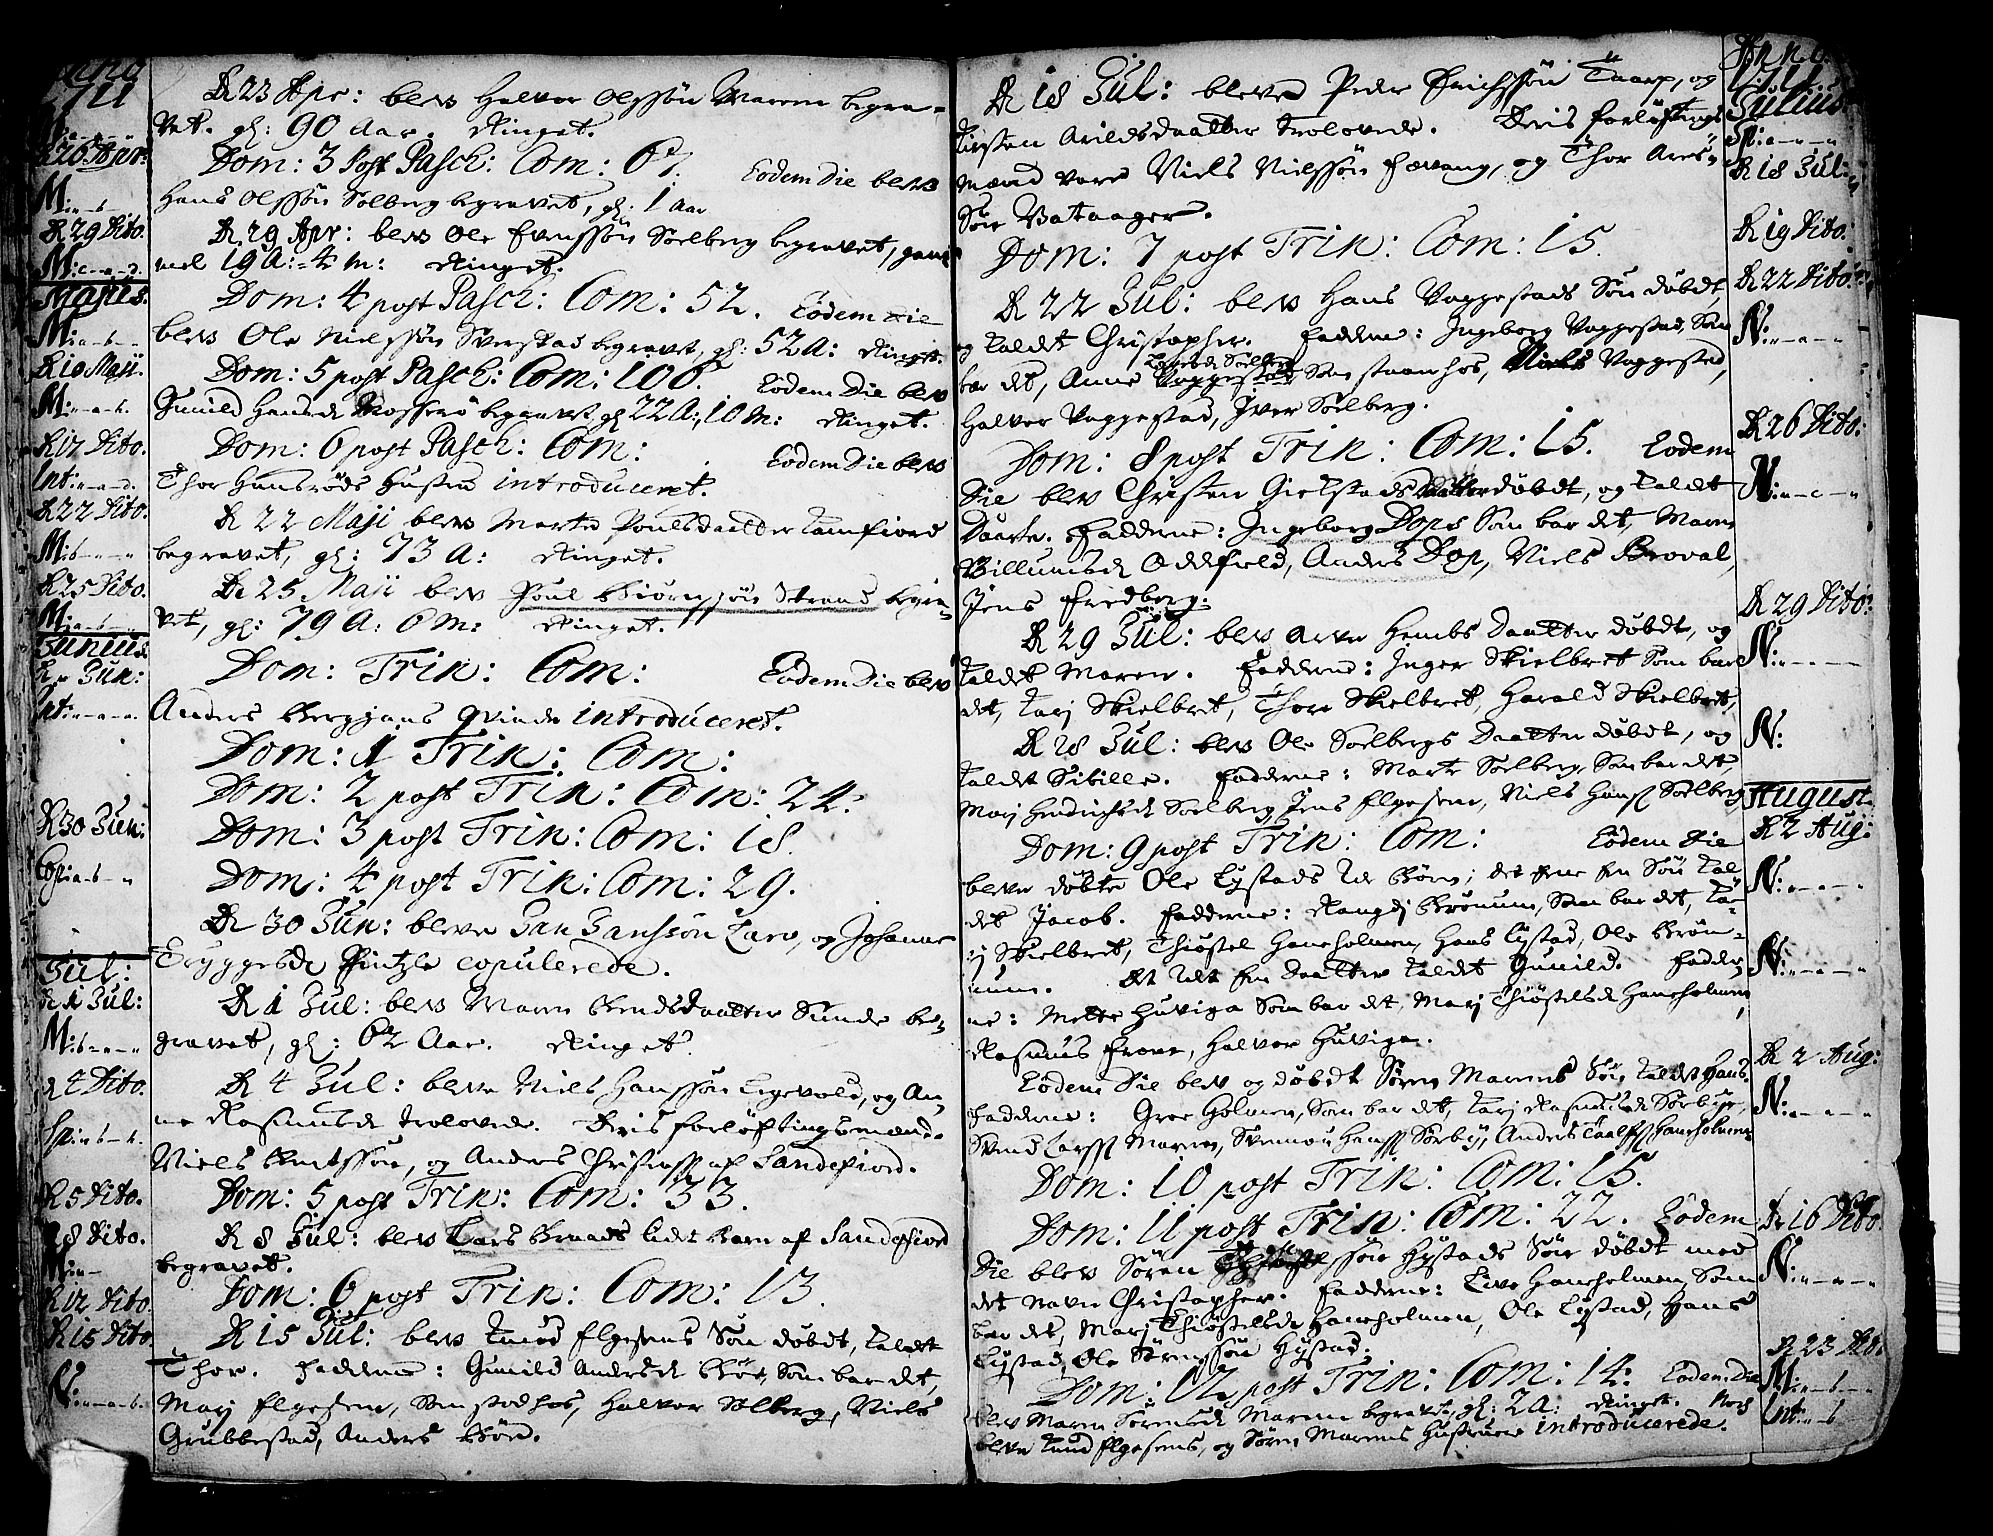 Anno
1711
D 26 Apr:
D 29 Dito.
Majus.
D 10 Maji.
D 17 Dito.
D 22 Dito.
D 25 Dito.
Junius
Jun:
D 30 Jun:
Jul:
D 1 Jul:
D 4 Dito.
D 5 Dito.
D 8 Dito.
D 12 Dito.
D 15 Dito
D 23 Apr: blev Halvor Olssön Marum begra-
vet. gl: 90 Aar. Ringet.
Dom: 3 Post Pasch: Com: 67. Eodem Die blev
Hans Olssön Solberg begravet, gl: 1 Aar
D 29 Apr: blev Ole Evenssön Soelberg begravet, gam-
mel 19 A: 4 m: Ringet.
Dom: 4 post Pasch: Com: 52. Eodem Die
blev Ole Nielssön Sverstad begravet, gl: 52 A: Ringet.
Dom: 5 post Pasch: Com: 106. Eodem Die blev
Gunild Hansd: Mosserö begravet gl 22 A:, 10 m: Ringet.
Dom: 6 post Pasch: Com: Eodem Die blev
Thor Hunsröds Hustru introduceret.
D 22 Maji blev Marte Poulsdaatter Lamfiord
begravet, gl: 73 A: Ringet.
D 25 Maji blev Poul Biörnssön Strand begra-
vet, gl: 79 A: 6 m: Ringet.
Dom: Trin: Com: Eodem Die blev
Anders Bergans Qvinde introduceret.
Dom: 1 Trin: Com:
Dom: 2 post Trin: Com: 24:
Dom: 3 post Trin: Com: 18.
Dom: 4 post Trin: Com: 29.
D 30 Jun: bleve Jan Janssön Larv, og Johanne
Tryggesd: Hintzle copulerede.
D 1 Jul: blev Maren Bendsdaatter Sunde be-
gravet, gl: 62 Aar. Ringet.
D 4 Jul: bleve Niels Hanssön Ligevold, og An-
ne Rasmusd: trolovede. Deris forlöftningsmænd.
Niels Bentssön, og Anders Christenss: af Sandefiord.
Dom: 5 post Trin: Com: 33.
D 8 Jul: blev Lars Braads lidet Barn af Sandefiord
begravet.
Dom: 6 post Trin: Com: 13.
D 15 Jul: blev Knud Elgesems Sön döbt, kaldet
Thor. Fadderne: Gunild Andersd: Böe, Som bar det,
Mari Elgesem, Som stod hos, Halvor Solberg, Niels
Grubbestad, Anders Böe.
D 18 Jul: bleve Peder Erichssön Taarp, og
Kirsten Arildsdaatter trolovede. Deris forlöftnings
mænd vare Niels Nielssön Fevang, og Thor Aress-
sön Vataager.
Dom: 7 post Trin: Com: 15.
D 22 Jul: blev Hans Vaggestads Sön döbdt,
og kaldet Christopher. Fadderne: Ingeborg Vaggestad, Som
bar det, Anne Soelberg Som staar hos, Niels Vaggestad,
Halvor Vaggestad, Iver Soelberg.
Dom: 8 post Trin: Com: 15. Eodem
Die blev Christen Gielstads Daatter döbdt, og kaldet
Daarte. Fadderne: Ingeborg Dops Som bar det, Maren
Villumsd: Oddfield, Anders Dop, Niels Broval,
Jens Fredberg.
D 29 Jul: blev Arve Hembs Daatter döbdt, og
kaldet Maren. Fadderne: Inger Skielbret Som bar
det, Karj Skielbret, Thore Skielbret, Harald Skielbret,
D 28 Jul: blev Ole Soelbergs Daatter döbdt, og
kaldet Sibille. Fadderne: Marte Soelberg, Som bar det,
Mari Hendrichsd: Soelberg, Jens Elgesem, Niels Hanss: Soelberg
Dom: 9 post Trin: Com: Eodem Die
bleve döbte Ole Lystads tve Börn; det ene en Sön kal-
det Jacob. Fadderne: Rangdj Brönum, Som bar det, Ka-
rj Skielbret, Thiöstel Haneholmen, Hans Lystad, Ole Brön-
num. Det det en Daatter kaldet Gunild. Fadder-
ne: Mette Huviga Som bar det, Mari Thiöstelsd: Haneholmen,
Rasmus Evove, Halvor Huviga.
Eodem Die blev og döbdt Sören Marums Sön kaldet Hans.
Fadderne: Groe Holmen, Som bar det, Karj Rasmusd: Sörbye,
Svend Larss: Marum, Hanss: Sörbye, Anders Haneholmen
Dom: 10 post Trin: Com: 15.
Dom: 11 post Trin: Com: 22. Eodem
Die blev Sören sön Hystads Sön döbdt med
det Navn Christopher. Fadderne: Live Haneholmen, Som
bar det, Mari Thiöstelsd: Haneholmen, Ole Lystad, Hans
Lystad, Ole Sörenssön Hystad.
Dom: 12 post Trin: Com: 14: Eodem Die
blev Maren Sörensd: Marum begravet, gl: 2 A: Ringet. Noch
bleve Knud Elgesems, og Sören Marums Hustruer introducerede.
Anno
1711.
Julius
D 18 Jul:
D 19 Dito:
D 22 Dito:
D 26 Dito:
D 29 Dito:
August.
D 2 Aug:
D 2 Aug:
D 16 Dito.
D 23 Dito.